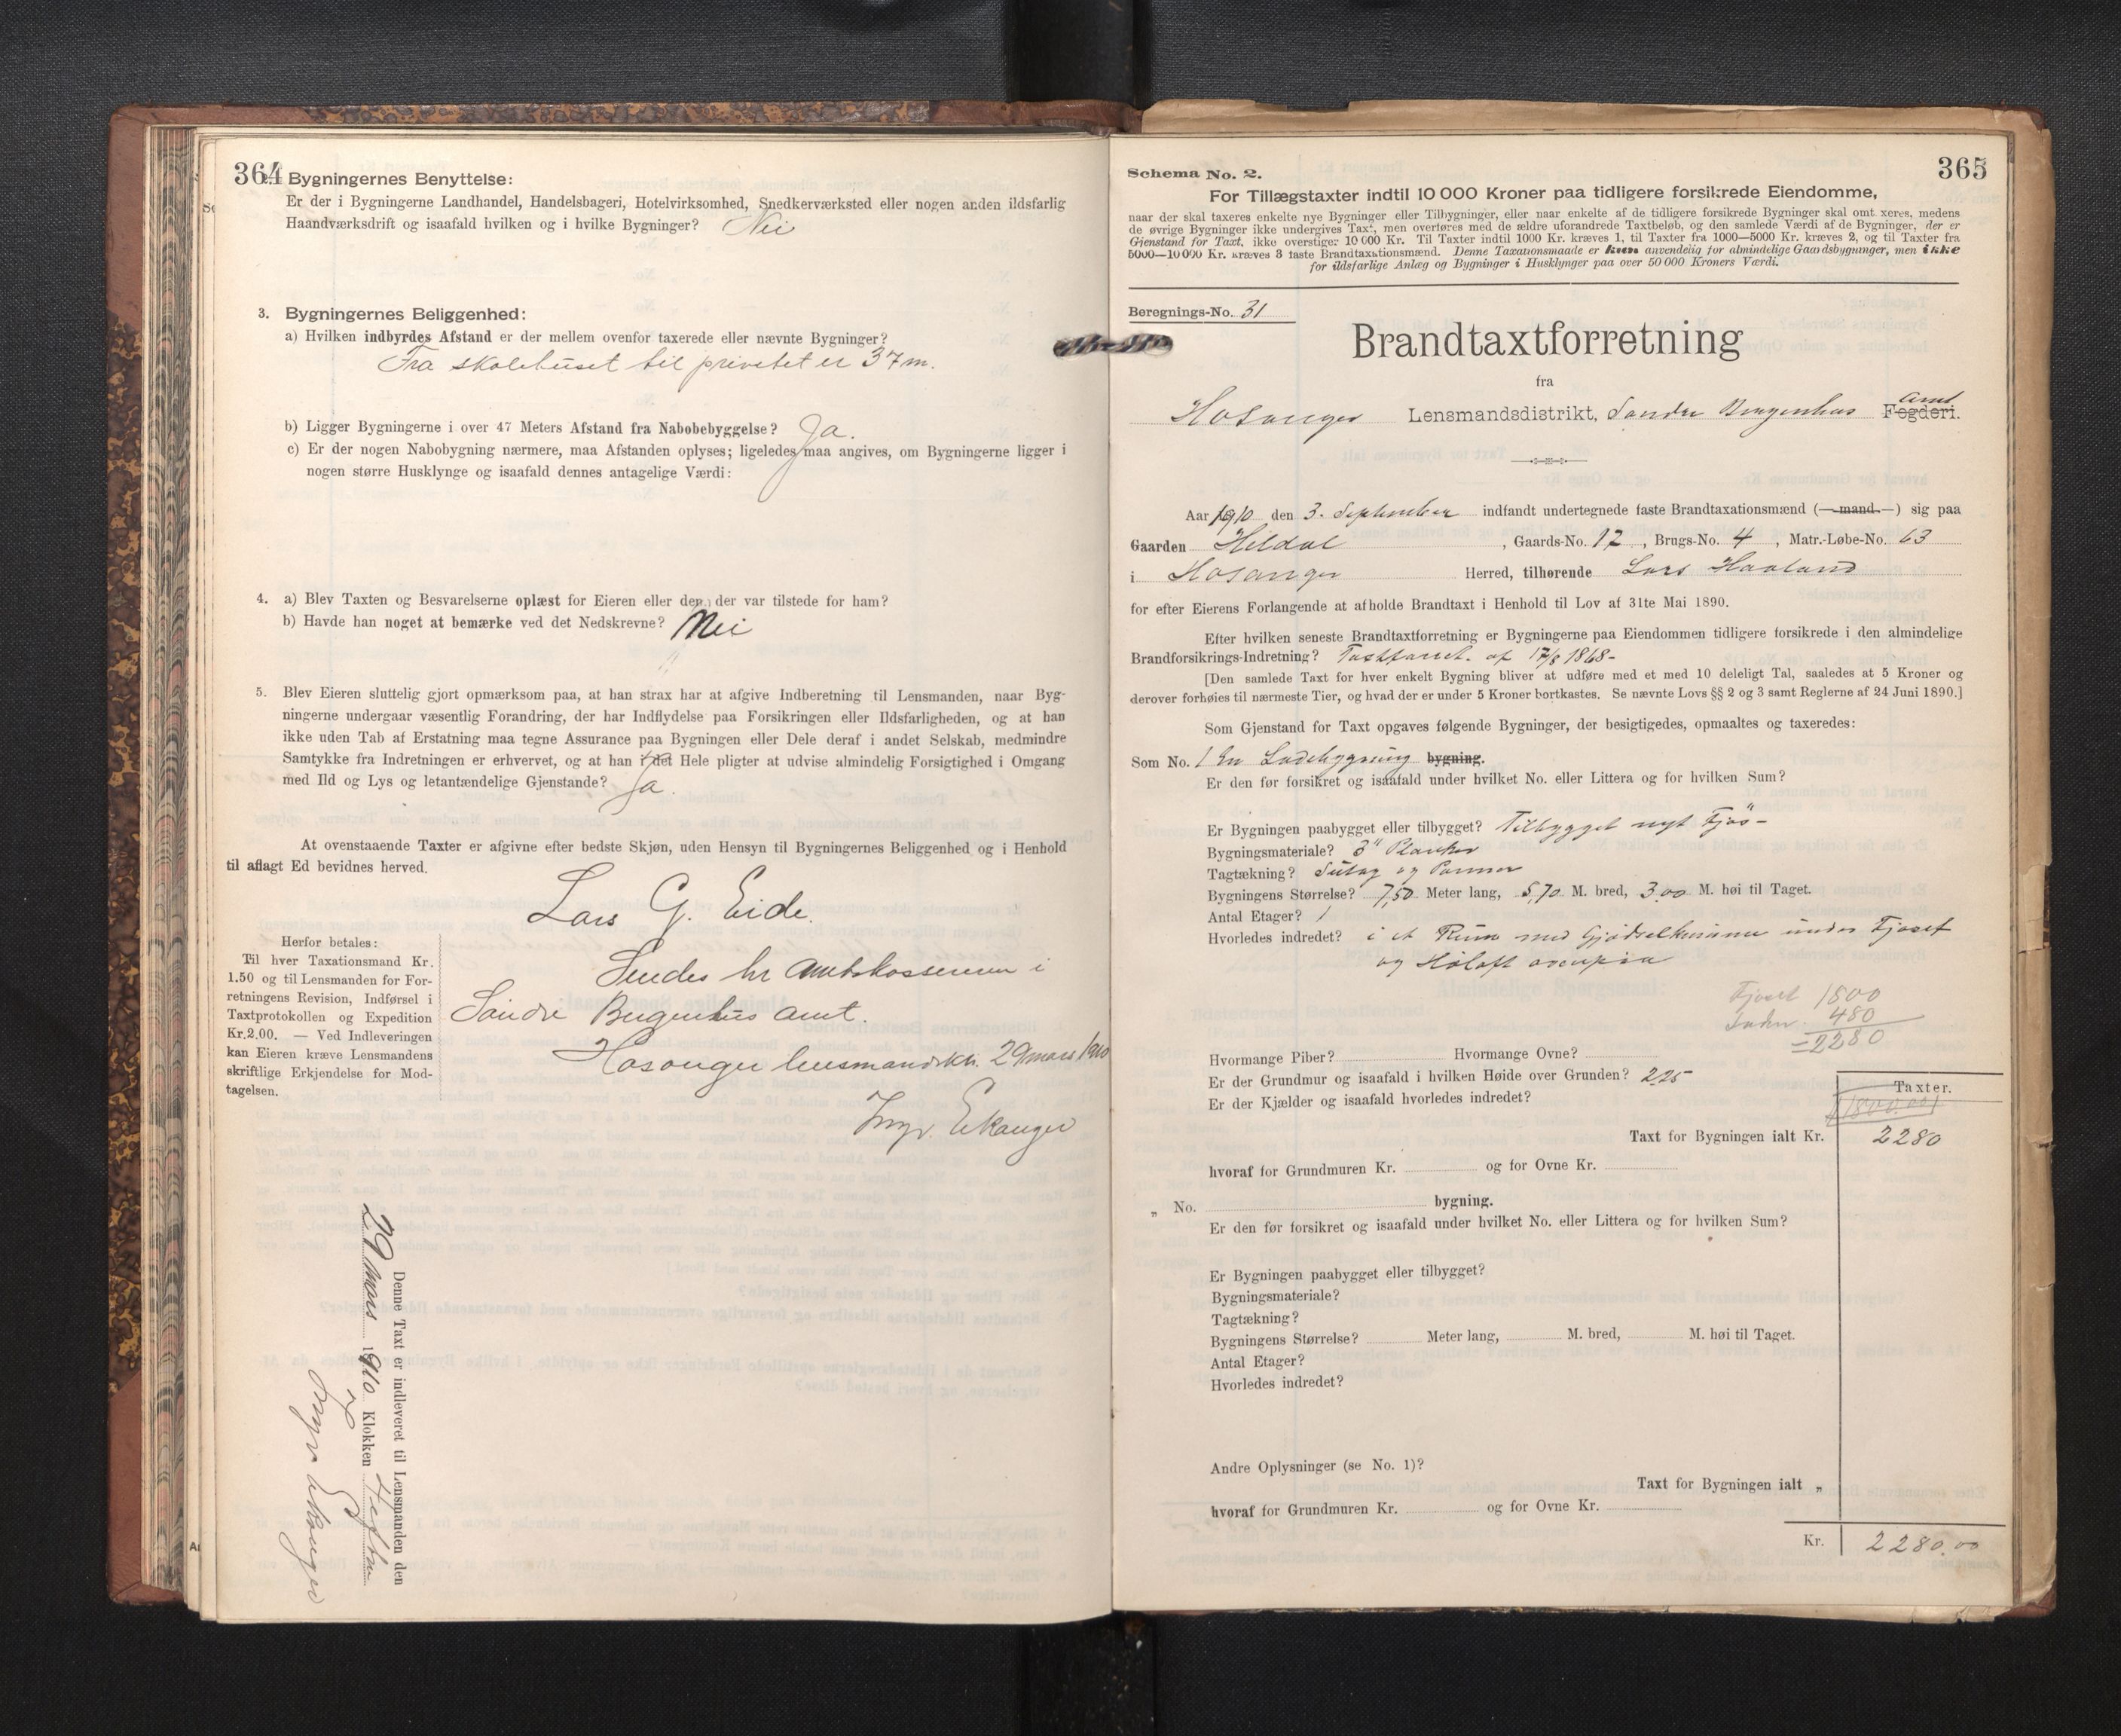 364
2. Bygningernes Benyttelse:
Er der i Bygningerne Landhandel, Handelsbageri, Hotelvirksomhed, Snedkerværksted eller nogen anden ildsfarlig
Haandværksdrift og isaafald hvilken og i hvilke Bygninger? Nei
3. Bygningernes Beliggenhed:
a) Hvilken indbyrdes Afstand er der mellem ovenfor taxerede eller nævnte Bygninger?
Fra skolehuset til privetet er 37 m.
b) Ligger Bygningerne i over 47 Meters Afstand fra Nabobebyggelse? Ja.
c) Er der nogen Nabobygning nærmere, maa Afstanden oplyses; ligeledes maa angives, om Bygningerne ligger i
nogen større Husklynge og isaafald dennes antagelige Værdi:
4. a) Blev Taxten og Besvarelserne oplæst for Eieren eller den, der var tilstede for ham?
b) Havde han noget at bemærke ved det Nedskrevne? Nei
5. Blev Eieren sluttelig gjort opmærksom paa, at han strax har at afgive Indberetning til Lensmanden, naar Byg-
ningerne undergaar væsentlig Forandring, der har Indflydelse paa Forsikringen eller Ildsfarligheden, og at han
ikke uden Tab af Erstatning maa tegne Assurance paa Bygningen eller Dele deraf i andet Selskab, medmindre
Samtykke fra Indretningen er erhvervet, og at han i det Hele pligter at udvise almindelig Forsigtighed i Omgang
med Ild og Lys og letantændelige Gjenstande? Ja.
At ovenstaaende Taxter er afgivne efter bedste Skjøn, uden Hensyn til Bygningernes Beliggenhed og i Henhold
til aflagt Ed bevidnes herved.
Lars G. Eide.
Herfor betales:
Til hver Taxationsmand Kr.
1.50 og til Lensmanden for For-
retningens Revision, Indførsel i
Taxtprotokollen og Expedition
Kr. 2.00. — Ved Indleveringen
kan Eieren kræve Lensmandens
skriftlige Erkjendelse for Mod-
tagelsen.
Sendes hr Amtskassereren i
Søndre Bergenhus amt.
Hosanger lensmandsktr. 29 mars 1910
Ingv. Ekanger
Denne Taxt er indleveret til Lensmanden den
29 Mars 1910 Klokken 4 Efterm
Ingv. Ekanger
365
Schema No. 2.
For Tillægstaxter indtil 10 000 Kroner paa tidligere forsikrede Eiendomme,
naar der skal taxeres enkelte nye Bygninger eller Tilbygninger, eller naar enkelte af de tidligere forsikrede Bygninger skal omtaxeres, medens
de øvrige Bygninger ikke undergives Taxt, men overføres med de ældre uforandrede Taxtbeløb, og den samlede Værdi af de Bygninger, der er
Gjenstand for Taxt, ikke overstiger 10 000 Kr. Til Taxter indtil 1000 Kr. kræves 1, til Taxter fra 1000—5000 Kr. kræves 2, og til Taxter fra
5000—10 000 Kr. kræves 3 faste Brandtaxationsmænd. Denne Taxationsmaade er kun anvendelig for almindelige Gaardsbygninger, men ikke
for ildsfarlige Anlæg og Bygninger i Husklynger paa over 50 000 Kroners Værdi.
Beregnings-No. 31
Brandtaxtforretning
fra
Hosanger Lensmandsdistrikt, Søndre Bergenhus Fogderi. Amt
Aar 1910 den 3. September indfandt undertegnede faste Brandtaxationsmænd (—mand—) sig paa
Gaarden Heldal, Gaards-No. 12, Brugs-No. 4, Matr.-Løbe-No. 63
i Hosanger Herred, tilhørende Lars Haaland
for efter Eierens Forlangende at afholde Brandtaxt i Henhold til Lov af 31te Mai 1890.
Efter hvilken seneste Brandtaxtforretning er Bygningerne paa Eiendommen tidligere forsikrede i den almindelige
Brandforsikrings-Indretning? Taxtforret. af 17/8 1868-
[Den samlede Taxt for hver enkelt Bygning bliver at udføre med et med 10 deleligt Tal, saaledes at 5 Kroner og
derover forhøies til nærmeste Tier, og hvad der er under 5 Kroner bortkastes. Se nævnte Lovs §§ 2 og 3 samt Reglerne af 24 Juni 1890.]
Som Gjenstand for Taxt opgaves følgende Bygninger, der besigtigedes, opmaaltes og taxeredes:
Som No. 1 En Ladebygning bygning.
Er den før forsikret og isaafald under hvilket No. eller Littera og for hvilken Sum?
Er Bygningen paabygget eller tilbygget? Tilbygget nyt Fjøs-
Bygningsmateriale? 3" Planker
Tagtækning? Sutag og Panner
Bygningens Størrelse? 7,50 Meter lang, 5,70 M. bred, 3.00 M. høi til Taget.
Antal Etager? 1
Hvorledes indretet? i et Rum med Gjødselkummer under Fjøset
og Høloft ovenpaa
Fjøset 1800
Laden 480
=2280
Hvormange Piber? Hvormange Ovne?
Er der Grundmur og isaafald i hvilken Høide over Grunden? 2.25
Er der Kjælder og isaafald hvorledes indredet?
Taxter.
1800.00
Taxt for Bygningen ialt Kr. 2280
hvoraf for Grundmuren Kr. og for Ovne Kr.
„ No. bygning.
Er den før forsikret og isaafald under hvilket No. eller Littera og for hvilken Sum?
Er Bygningen paabygget eller tilbygget?
Bygningsmateriale?
Tagtækning?
Bygningens Størrelse? Meter lang, M. bred, M. høi til Taget.
Antal Etager?
Hvorledes indredet?
Andre Oplysninger (se No. 1)?
Taxt for Bygningen ialt „
hvoraf for Grundmuren Kr. og for Ovne Kr.
Kr. 2280.00